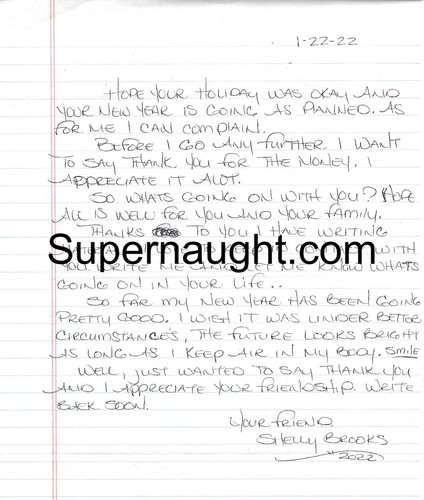 1-22-22
HOPE YOUR HOLIDAY WAS OKAY AND
YOUR NEW YEAR IS GOING AS PLANNED. AS
FOR ME I CAN COMPLAIN.
BEFORE I GO ANY FURTHER I WANT
TO SAY THANK YOU FOR THE MONEY. I
APPRECIATE IT ALOT.
SO WHATS GOING ON WITH YOU? HOPE
ALL IS WELL FOR YOU AND YOUR FAMILY.
THANKS TO YOU I HAVE WRITING
Supernaught.com
WITH
YOU. WRITE ME AND LET ME KNOW WHATS
GOING ON IN YOUR LIFE..
SO FAR MY NEW YEAR HAS BEEN GOING
PRETTY GOOD. I WISH IT WAS UNDER BETTER
CIRCUMSTANCE'S, THE FUTURE LOOKS BRIGHT
AS LONG AS I KEEP AIR IN MY BODY. SMILE
WELL, JUST WANTED TO SAY THANK YOU
AND I APPRECIATE YOUR FRIENDSHIP. WRITE
BACK SOON.
YOUR FRIEND
SHELLY BROOKS
2022